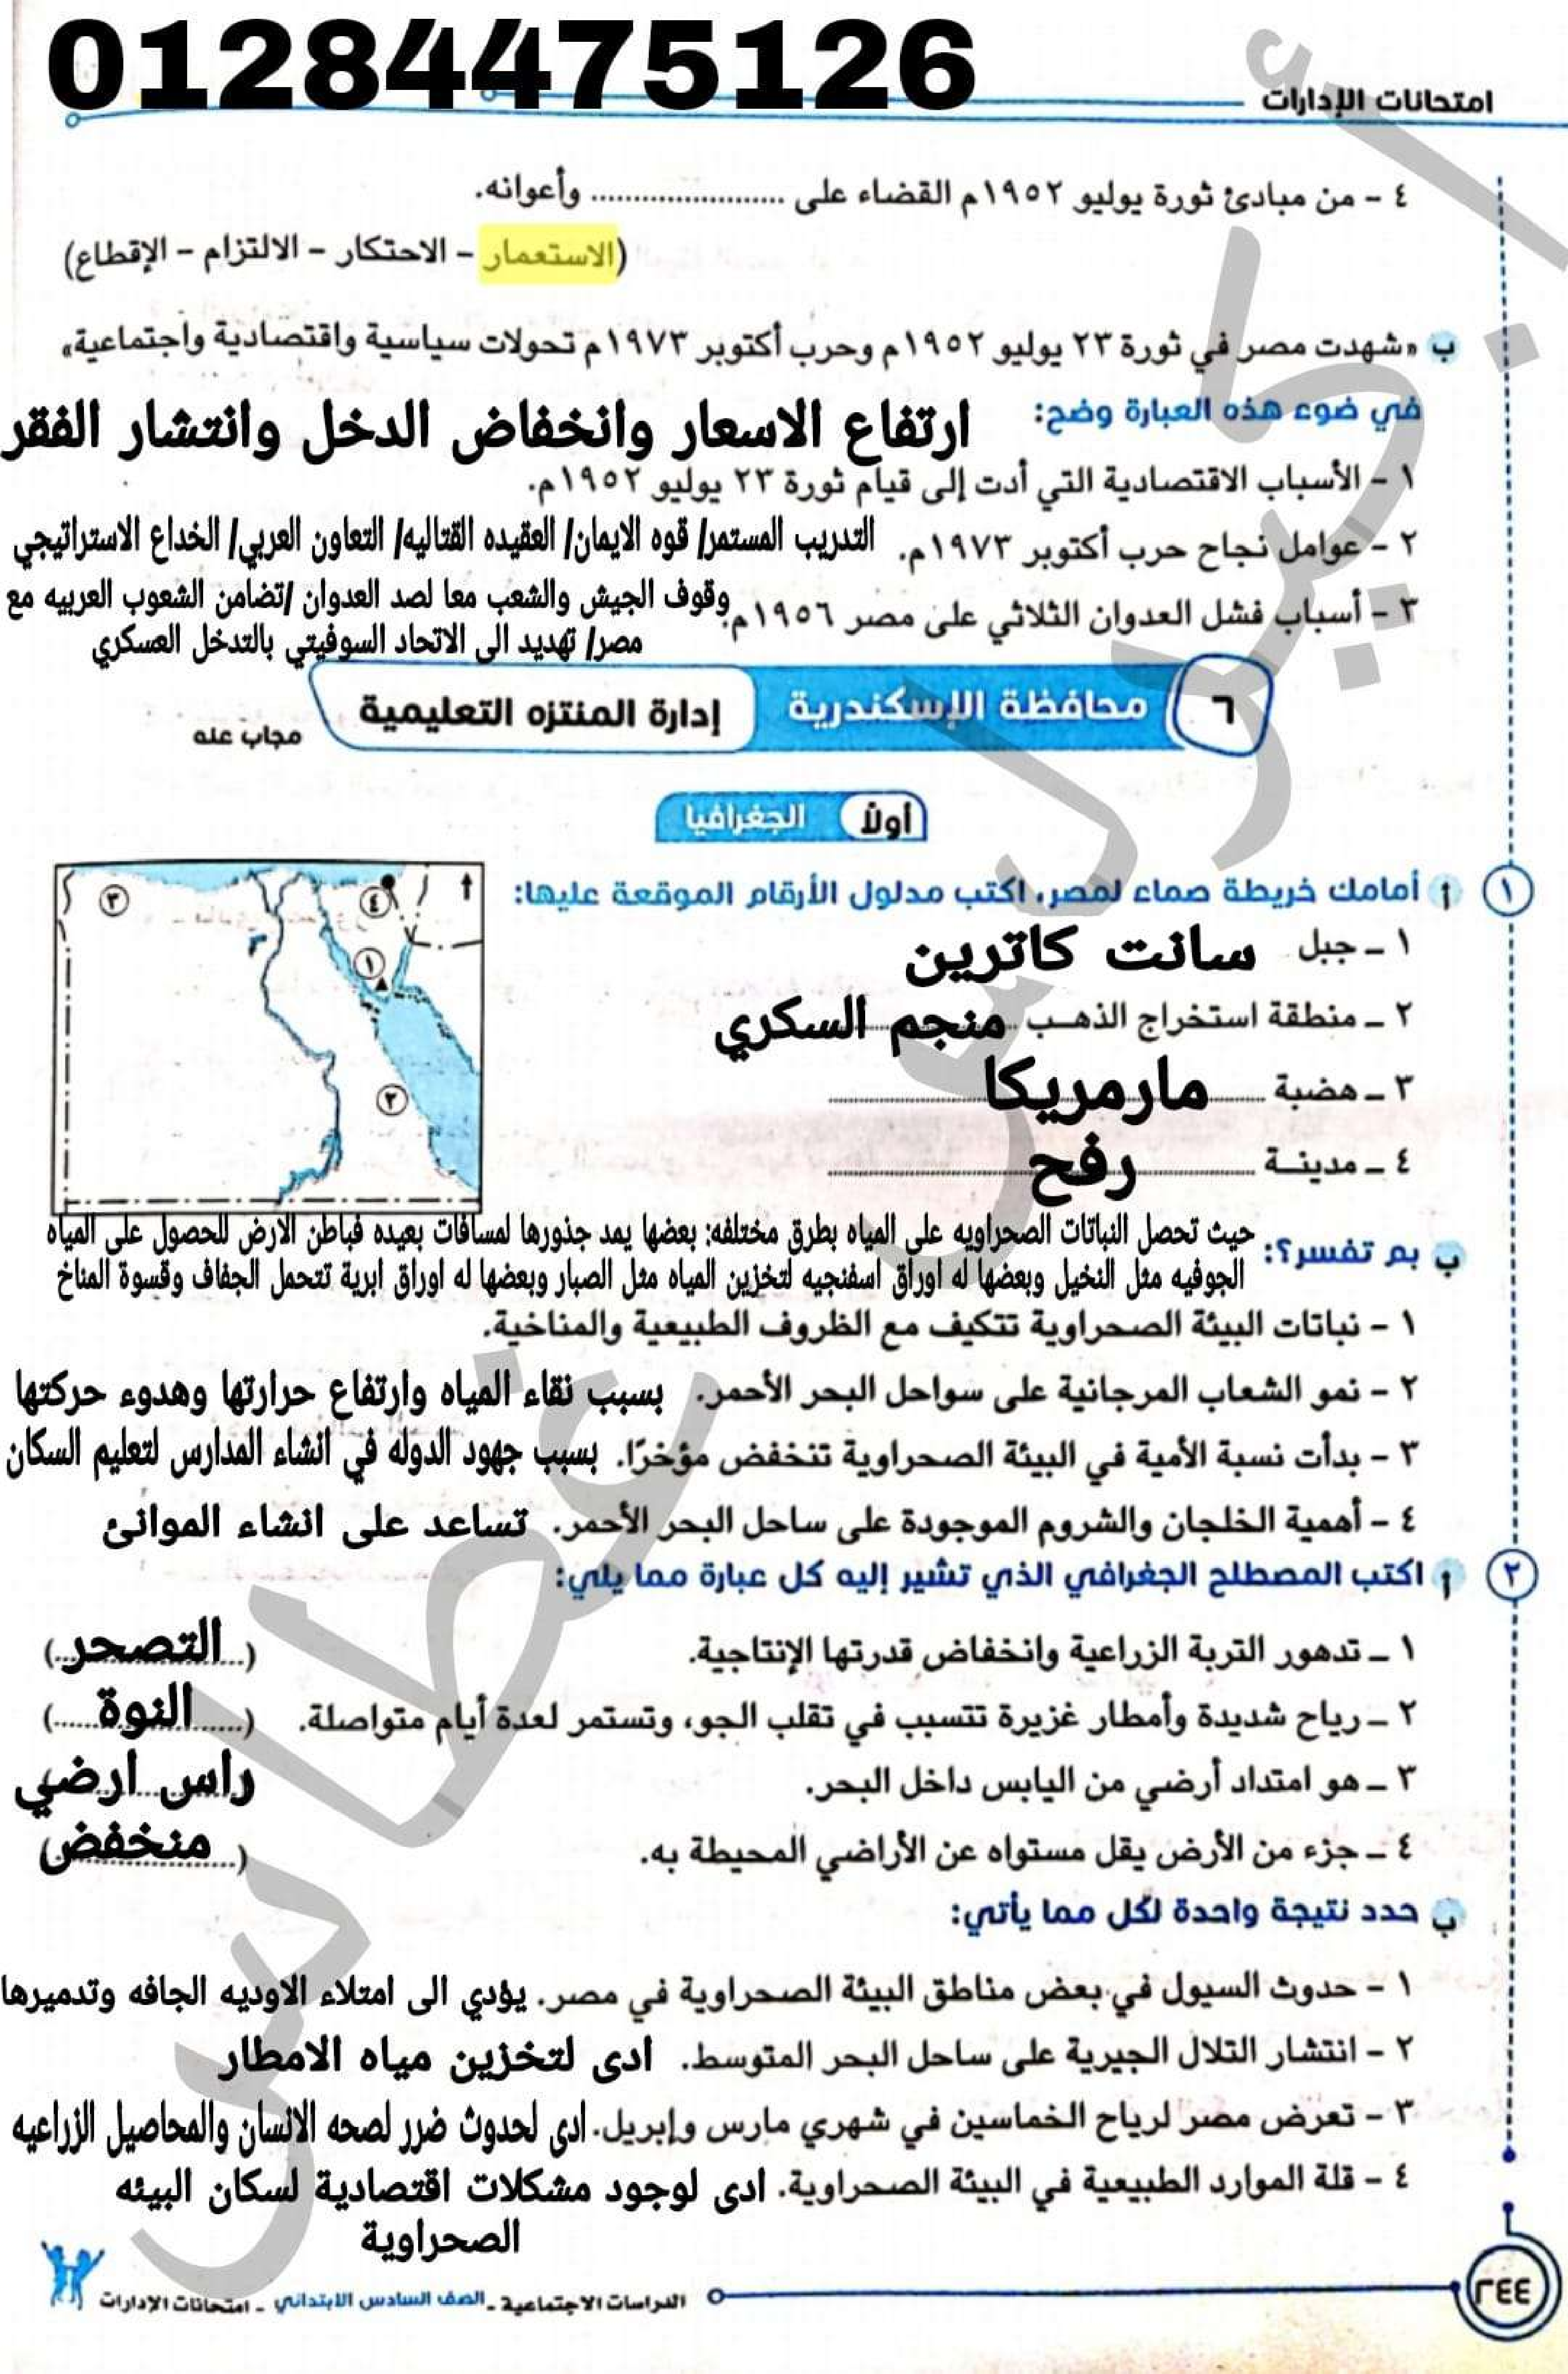 01284475126
امتحانات الإدارات
٤ - من مبادئ ثورة يوليو ١٩٥٢م القضاء على ........................ وأعوانه.
(الاستعمار - الاحتكار - الالتزام - الإقطاع)
ب «شهدت مصر في ثورة ٢٣ يوليو ١٩٥٢م وحرب أكتوبر ١٩٧٣م تحولات سياسية واقتصادية واجتماعية»
في ضوء هذه العبارة وضح: ارتفاع الاسعار وانخفاض الدخل وانتشار الفقر
١ - الأسباب الاقتصادية التي أدت إلى قيام ثورة ٢٣ يوليو ١٩٥٢م.
٢ - عوامل نجاح حرب أكتوبر ١٩٧٣م. التدريب المستمر/ قوه الايمان/ العقيده القتاليه/ التعاون العربي/ الخداع الاستراتيجي
٣ - أسباب فشل العدوان الثلاثي على مصر ١٩٥٦م. وقوف الجيش والشعب معا لصد العدوان /تضامن الشعوب العربيه مع
مصر/ تهديد الى الاتحاد السوفيتي بالتدخل العسكري
٦ محافظة الإسكندرية إدارة المنتزه التعليمية مجاب عنه
أولاً الجغرافيا
١ أ أمامك خريطة صماء لمصر، اكتب مدلول الأرقام الموقعة عليها:
١ ـ جبل سانت كاترين
٢ ـ منطقة استخراج الذهب منجم السكري
٣ ـ هضبة مارمريكا
٤ ـ مدينة رفح
٣
٤
١
٢
ب بم تفسر؟: حيث تحصل النباتات الصحراويه على المياه بطرق مختلفه: بعضها يمد جذورها لمسافات بعيده فباطن الارض للحصول على المياه
الجوفيه مثل النخيل وبعضها له اوراق اسفنجيه لتخزين المياه مثل الصبار وبعضها له اوراق ابرية تتحمل الجفاف وقسوة المناخ
١ - نباتات البيئة الصحراوية تتكيف مع الظروف الطبيعية والمناخية.
٢ - نمو الشعاب المرجانية على سواحل البحر الأحمر. بسبب نقاء المياه وارتفاع حرارتها وهدوء حركتها
٣ - بدأت نسبة الأمية في البيئة الصحراوية تنخفض مؤخرًا. بسبب جهود الدوله في انشاء المدارس لتعليم السكان
٤ - أهمية الخلجان والشروم الموجودة على ساحل البحر الأحمر. تساعد على انشاء الموانئ
٢ أ اكتب المصطلح الجغرافي الذي تشير إليه كل عبارة مما يلي:
١ ـ تدهور التربة الزراعية وانخفاض قدرتها الإنتاجية. (التصحر)
٢ ـ رياح شديدة وأمطار غزيرة تتسبب في تقلب الجو، وتستمر لعدة أيام متواصلة. (النوة)
٣ ـ هو امتداد أرضي من اليابس داخل البحر. راس ارضي
٤ ـ جزء من الأرض يقل مستواه عن الأراضي المحيطة به. (منخفض)
ب حدد نتيجة واحدة لكل مما يأتي:
١ - حدوث السيول في بعض مناطق البيئة الصحراوية في مصر. يؤدي الى امتلاء الاوديه الجافه وتدميرها
٢ - انتشار التلال الجيرية على ساحل البحر المتوسط. ادى لتخزين مياه الامطار
٣ - تعرض مصر لرياح الخماسين في شهري مارس وإبريل. ادى لحدوث ضرر لصحه الانسان والمحاصيل الزراعيه
٤ - قلة الموارد الطبيعية في البيئة الصحراوية. ادى لوجود مشكلات اقتصادية لسكان البيئه
الصحراوية
٢٤٤ الدراسات الاجتماعية ـ الصف السادس الابتدائي ـ امتحانات الإدارات